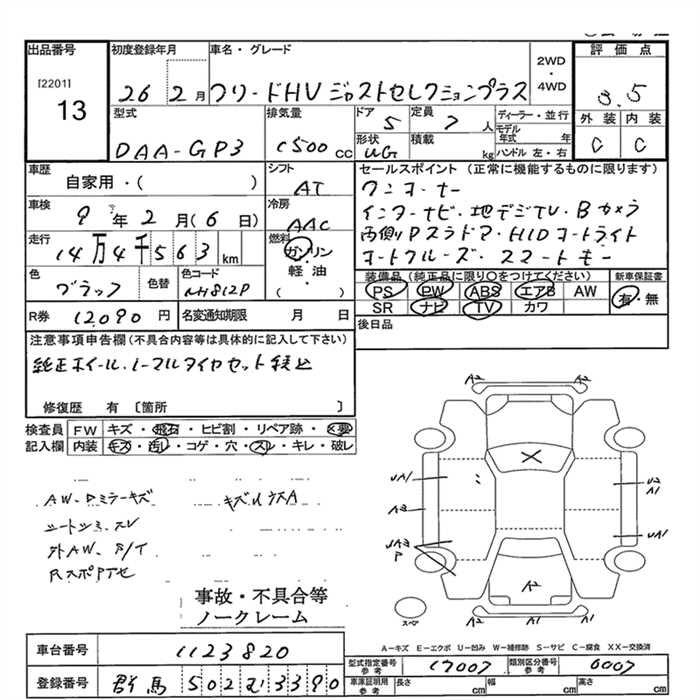 出品番号 初度登録年月 車名・グレード 2WD・4WD 評価点
[2201] 13 26 2月 フリードHV ジャストセレクションプラス 3.5
型式 排気量 ドア 定員 ディーラー・並行 外装 内装
DAA-GP3 1500cc 5 7人 モデル年式 年 C C
形状 積載 ハンドル 左・右
UG kg
車歴 シフト セールスポイント(正常に機能するものに限ります)
自家用・( ) AT ワンオーナー
車検 冷房 インターナビ・地デジTV・Bカメラ
9年2月(6日) AAC 両側Pスラドア・HIDオートライト
走行 燃料 オートクルーズ・スマートキー
14万4千563km ガソリン・軽・油( )
装備品(純正品に限り○をつけてください) 新車保証書
色 色替 色コード PS PW ABS エアB AW 有・無
ブラック NH812P SR ナビ TV カワ
R券 12,090円 名変通知期限 月 日 後日品
注意事項申告欄(不具合内容等は具体的に記入して下さい)
純正ホイール・ノーマルタイヤセット積込
修復歴 有 〔箇所 〕
検査員 FW キズ・飛石・ヒビ割・リペア跡・X要
記入欄 内装 キズ・汚レ・コゲ・穴・スレ・キレ・破レ
A2 A2
UA1 U2 A1
AW、Dミラーキズ キズ
A3
シートシミ、スレ UA1
外AW、S/T UA3 P
A2
A2 A1 A1
スペア
事故・不具合等
ノークレーム
A-キズ E-エクボ U-凹み W-補修跡 S-サビ C-腐食 XX-交換済
車台番号 1123820
型式指定番号 参考 17007 類別区分番号 参考 0007
登録番号 群馬 502 む 3390
車庫証明用 参考 長さ cm 幅 cm 高さ cm